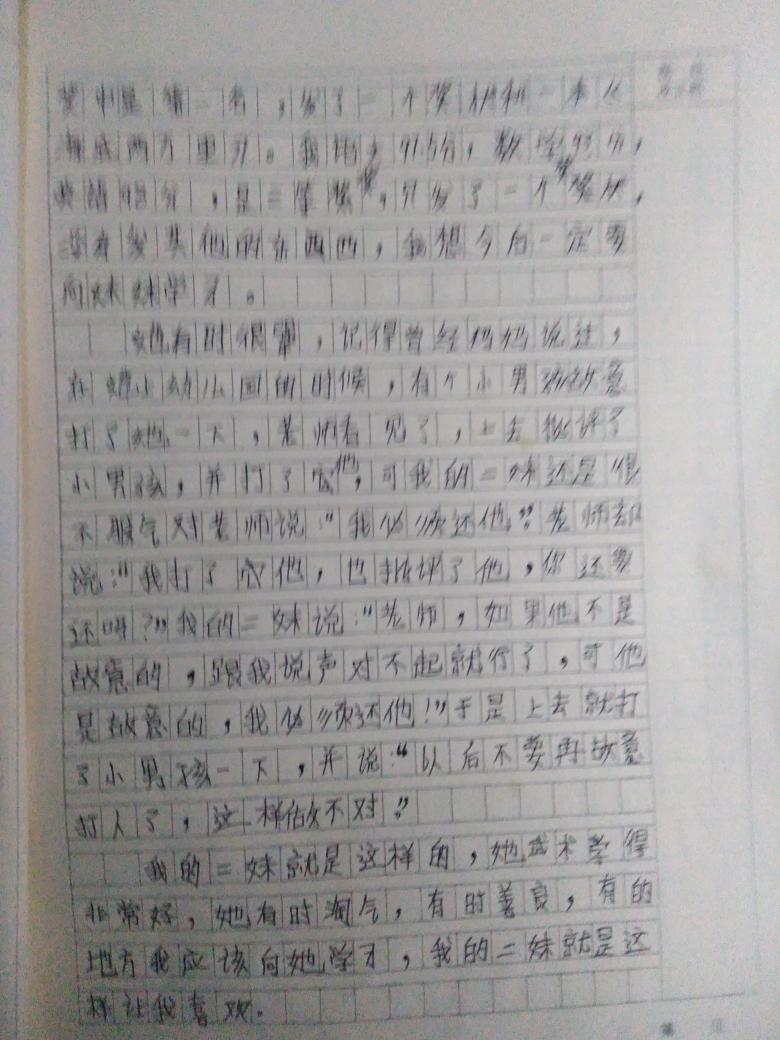 是第一名，发了一个奖状和一本
两万里。我语文分，数学分，
英语分，是三等奖，只发了一个奖状，
没有发其他的东西，我想今后一定要
向妹妹学习。
她有时很犟，记得曾经妈妈说过，
在她上幼儿园的时候，有个小男孩故意
打了她一下，老师看见了，上去批评了
小男孩，并打了他，可我的二妹还是很
不服气对老师说："我必须还他。"老师却
说："我打了他，也批评了他，你还要
还吗？"我的二妹说："老师，如果他不是
故意的，跟我说声对不起就行了，可他
是故意的，我必须还他！"于是上去就打
了小男孩一下，并说："以后不要再故意
打人了，这样做不对。"
我的二妹就是这样的，她武术学得
非常好，她有时淘气，有时善良，有的
地方我应该向她学习，我的二妹就是这
样让我喜欢。
第 页